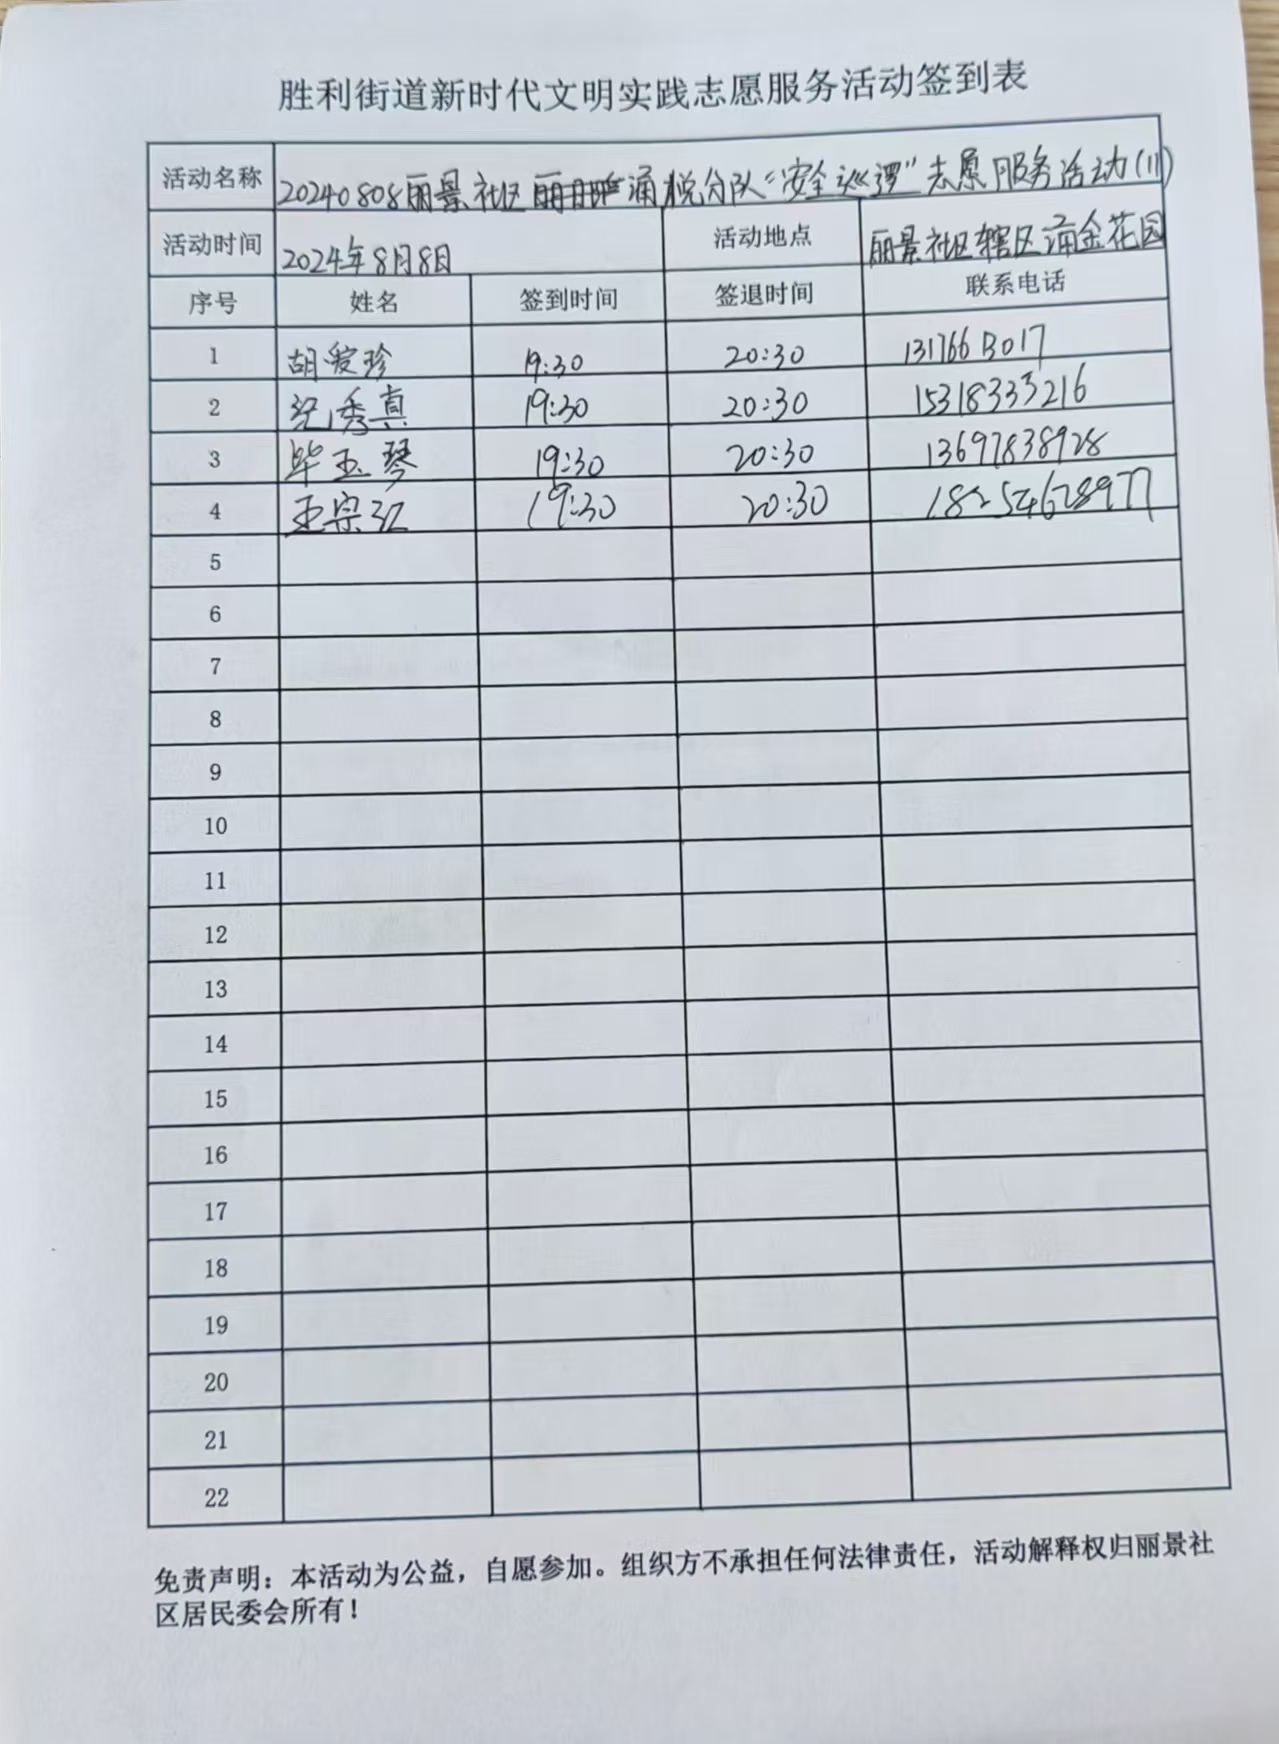 胜利街道新时代文明实践志愿服务活动签到表
活动名称 20240808丽景社区涌税分队“安全巡逻”志愿服务活动(11)
活动时间 2024年8月8日 活动地点 丽景社区辖区涌金花园
序号 姓名 签到时间 签退时间 联系电话
1 胡爱珍 19:30 20:30
2 纪秀真 19:30 20:30 15318333216
3 毕玉琴 19:30 20:30 13697838928
4 王宗江 19:30 20:30
5
6
7
8
9
10
11
12
13
14
15
16
17
18
19
20
21
22
免责声明：本活动为公益，自愿参加。组织方不承担任何法律责任，活动解释权归丽景社
区居民委会所有！